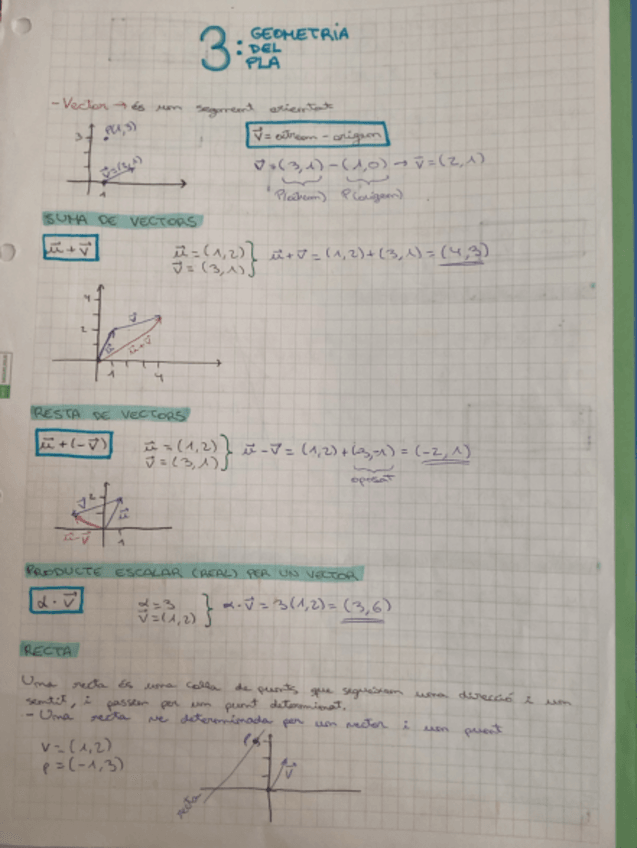 3: GEOMETRIA
DEL
PLA
- Vector → és un segment orientat
P(1,3)
3
v⃗=(2,1)
1
v⃗ = extrem - origen
v⃗ = (3,1) - (1,0) → v⃗ = (2,1)
P(extrem) P(origen)
SUMA DE VECTORS
u⃗ + v⃗
u⃗ = (1,2)
v⃗ = (3,1)
} u⃗ + v⃗ = (1,2) + (3,1) = (4,3)
4
2
v⃗
u⃗
u⃗+v⃗
1 4
RESTA DE VECTORS
u⃗ + (-v⃗)
u⃗ = (1,2)
v⃗ = (3,1)
} u⃗ - v⃗ = (1,2) + (-3,-1) = (-2,1)
oposat
v⃗ 2
u⃗
u⃗-v⃗ 1
PRODUCTE ESCALAR (REAL) PER UN VECTOR
α · v⃗
α = 3
v⃗ = (1,2)
} α · v⃗ = 3(1,2) = (3,6)
RECTA
Una recta és una colla de punts, que segueixen una direcció i un
sentit, i passen per un punt determinat.
- Una recta ve determinada per un vector i un punt
v = (1,2)
p = (-1,3)
P 3
v⃗
recta